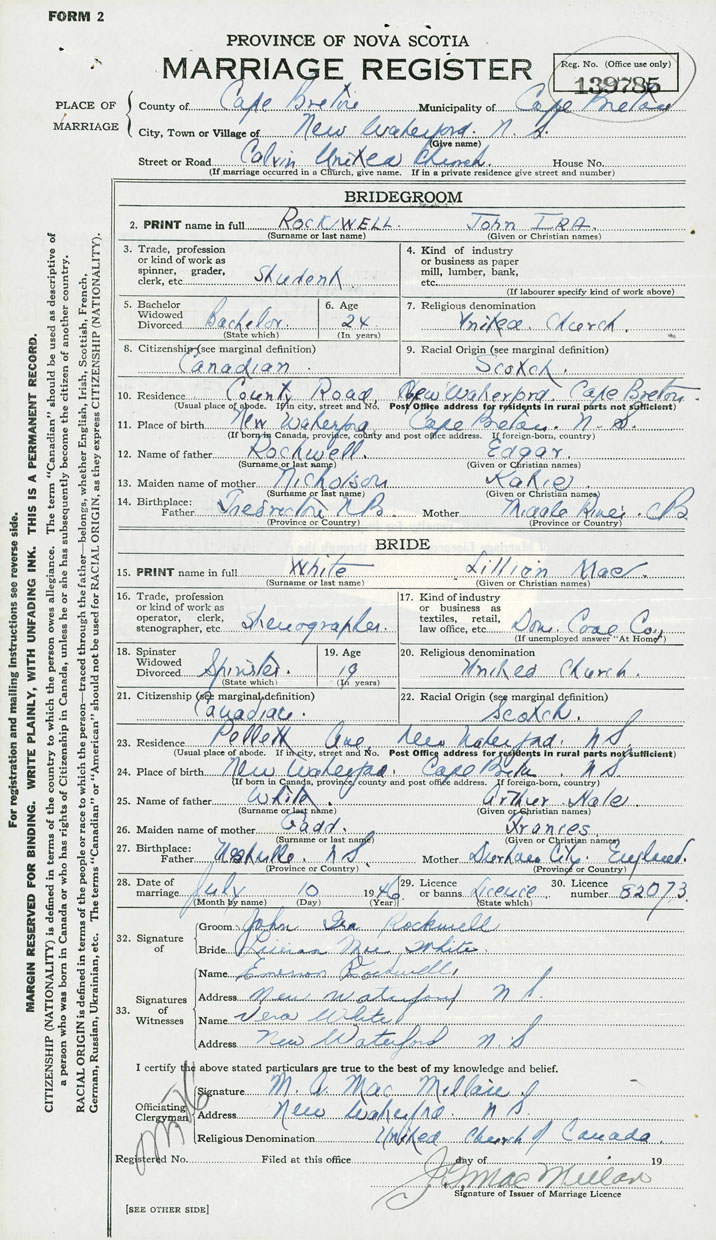 FORM 2
PROVINCE OF NOVA SCOTIA
MARRIAGE REGISTER
Reg. No. (Office use only)
139785
PLACE OF MARRIAGE
County of Cape Breton Municipality of Cape Breton
City, Town or Village of New Waterford. N. S.
(Give name)
Street or Road Calvin United Church. House No.
(If marriage occurred in a Church, give name. If in a private residence give street and number)
BRIDEGROOM
2. PRINT name in full ROCKWELL. John IRA.
(Surname or last name) (Given or Christian names)
3. Trade, profession or kind of work as spinner, grader, clerk, etc Student
4. Kind of industry or business as paper mill, lumber, bank, etc.
(If labourer specify kind of work above)
5. Bachelor Widowed Divorced Bachelor. (State which)
6. Age 24 (In years)
7. Religious denomination United Church.
8. Citizenship (see marginal definition) Canadian
9. Racial Origin (see marginal definition) Scotch.
10. Residence County Road, New Waterford. Cape Breton.
(Usual place of abode. If in city, street and No. Post Office address for residents in rural parts not sufficient)
11. Place of birth New Waterford Cape Breton. N. S.
(If born in Canada, province, county and post office address. If foreign-born, country)
12. Name of father Rockwell. Edgar.
(Surname or last name) (Given or Christian names)
13. Maiden name of mother Nicholson Katie.
(Surname or last name) (Given or Christian names)
14. Birthplace: Father N.B. Mother Middle River. CB
(Province or Country) (Province or Country)
BRIDE
15. PRINT name in full White Lillian Mae.
(Surname or last name) (Given or Christian names)
16. Trade, profession or kind of work as operator, clerk, stenographer, etc Stenographer.
17. Kind of industry or business as textiles, retail, law office, etc. Dom. Coal Co.
(If unemployed answer "At Home")
18. Spinster Widowed Divorced Spinster. (State which)
19. Age 19 (In years)
20. Religious denomination United Church.
21. Citizenship (see marginal definition) Canadian.
22. Racial Origin (see marginal definition) Scotch.
23. Residence Ave, New Waterford. N S.
(Usual place of abode. If in city, street and No. Post Office address for residents in rural parts not sufficient)
24. Place of birth New Waterford. Cape Breton. N.S.
(If born in Canada, province, county and post office address. If foreign-born, country)
25. Name of father White. Arthur Hale
(Surname or last name) (Given or Christian names)
26. Maiden name of mother Frances.
(Surname or last name) (Given or Christian names)
27. Birthplace: Father N.S. Mother Durham City. England.
(Province or Country) (Province or Country)
28. Date of marriage July 10 1946
(Month by name) (Day) (Year)
29. Licence or banns Licence (State which)
30. Licence number 82073
32. Signature of
Groom John Ira Rockwell
Bride Lillian Mae White.
33. Signatures of Witnesses
Name Emerson Rockwell
Address New Waterford N S.
Name Vera White
Address New Waterford N S
I certify the above stated particulars are true to the best of my knowledge and belief.
Officiating Clergyman
Signature M. A. MacMillan
Address New Waterford N S
Religious Denomination United Church of Canada.
Registered No. Filed at this office day of 19
MacMillan
Signature of Issuer of Marriage Licence
[SEE OTHER SIDE]
For registration and mailing instructions see reverse side.
MARGIN RESERVED FOR BINDING. WRITE PLAINLY, WITH UNFADING INK. THIS IS A PERMANENT RECORD.
CITIZENSHIP (NATIONALITY) is defined in terms of the country to which the person owes allegiance. The term "Canadian" should be used as descriptive of
a person who was born in Canada or who has rights of Citizenship in Canada, unless he or she has subsequently become the citizen of another country.
RACIAL ORIGIN is defined in terms of the people or race to which the person—traced through the father—belongs, whether English, Irish, Scottish, French,
German, Russian, Ukrainian, etc. The terms "Canadian" or "American" should not be used for RACIAL ORIGIN, as they express CITIZENSHIP (NATIONALITY).